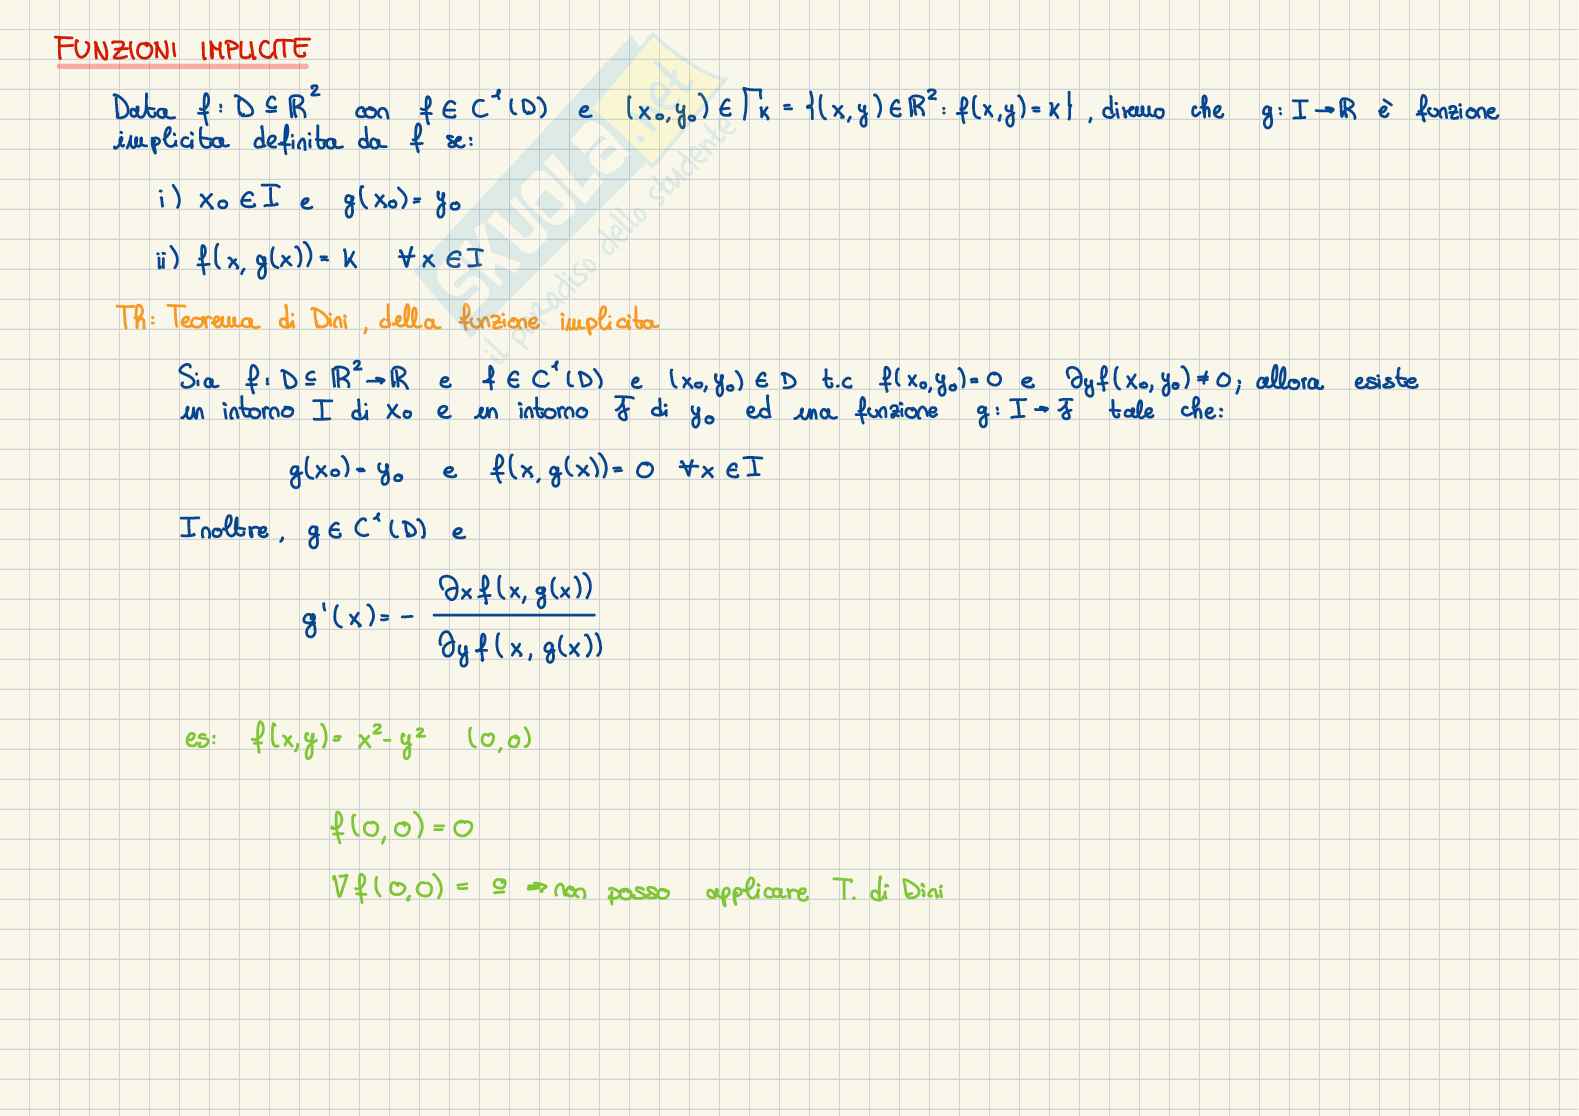 FUNZIONI IMPLICITE
Data f: D ⊆ ℝ² con f ∈ C¹(D) e (x₀,y₀) ∈ Γₖ = {(x,y) ∈ ℝ²: f(x,y) = k}, diremo che g: I → ℝ è funzione
implicita definita da f se:
i) x₀ ∈ I e g(x₀) = y₀
ii) f(x, g(x)) = k ∀x ∈ I
Th: Teorema di Dini, della funzione implicita
Sia f: D ⊆ ℝ² → ℝ e f ∈ C¹(D) e (x₀,y₀) ∈ D t.c f(x₀,y₀) = 0 e ∂yf(x₀,y₀) ≠ 0; allora esiste
un intorno I di x₀ e un intorno J di y₀ ed una funzione g: I → J tale che:
g(x₀) = y₀ e f(x, g(x)) = 0 ∀x ∈ I
Inoltre, g ∈ C¹(D) e
g'(x) = - ∂xf(x, g(x)) / ∂yf(x, g(x))
es: f(x,y) = x² - y² (0,0)
f(0,0) = 0
∇f(0,0) = 0 → non posso applicare T. di Dini
SKUOLA.net
il paradiso dello studente